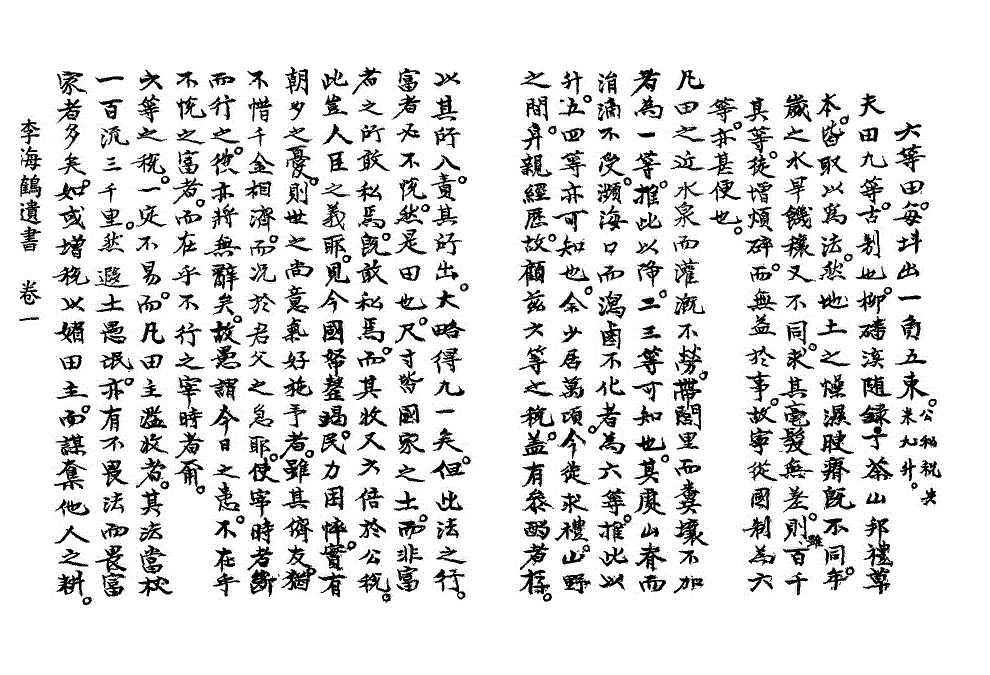 六等田。每斗出一角五束。公私稅共米九升。
夫田九等。古制也。柳磻溪隨錄丁茶山邦禮草
本。皆取以爲法。然地土之燥濕腴瘠旣不同。年
歲之水旱饑穰又不同。求其毫髮無差。則雖百千
其等。徒增煩碎。而無益於事。故寧從國制爲六
等。亦甚便也。
凡田之近水泉而灌漑不勞。帶閭里而糞壤不加
者爲一等。推此以降。二三等可知也。其處山脊而
涓滴不受。瀕海口而瀉鹵不化者爲六等。推此以
升。五四等亦可知也。余少居萬頃。今徙求禮。山野
之間。弄親經歷。故顧玆六等之稅。盖有參酌者存。
以其所入。責其所出。大略得九一矣。但出法之行。
富者必不悅。然是田也。尺寸皆國家之土。而非富
者之所敢私焉。旣敢私焉。而其收又六倍於公稅。
此豈人臣之義耶。見今國帑罄竭。民力困悴。實有
朝夕之憂。則世之尙意氣好施予者。雖其儕友。猶
不惜千金相濟。而况於君父之急耶。使宰時者斷
而行之。彼亦將無辭矣。故愚謂今日之患。不在乎
不悅之富者。而在乎不行之宰時者爾。
六等之稅。一定不易。而凡田主濫收者。其法當杖
一百流三千里。然遐土愚氓。亦有不畏法而畏富
家者多矣。如或增稅以媚田主。而謀奪他人之耕。
李海鶴遺書 卷一